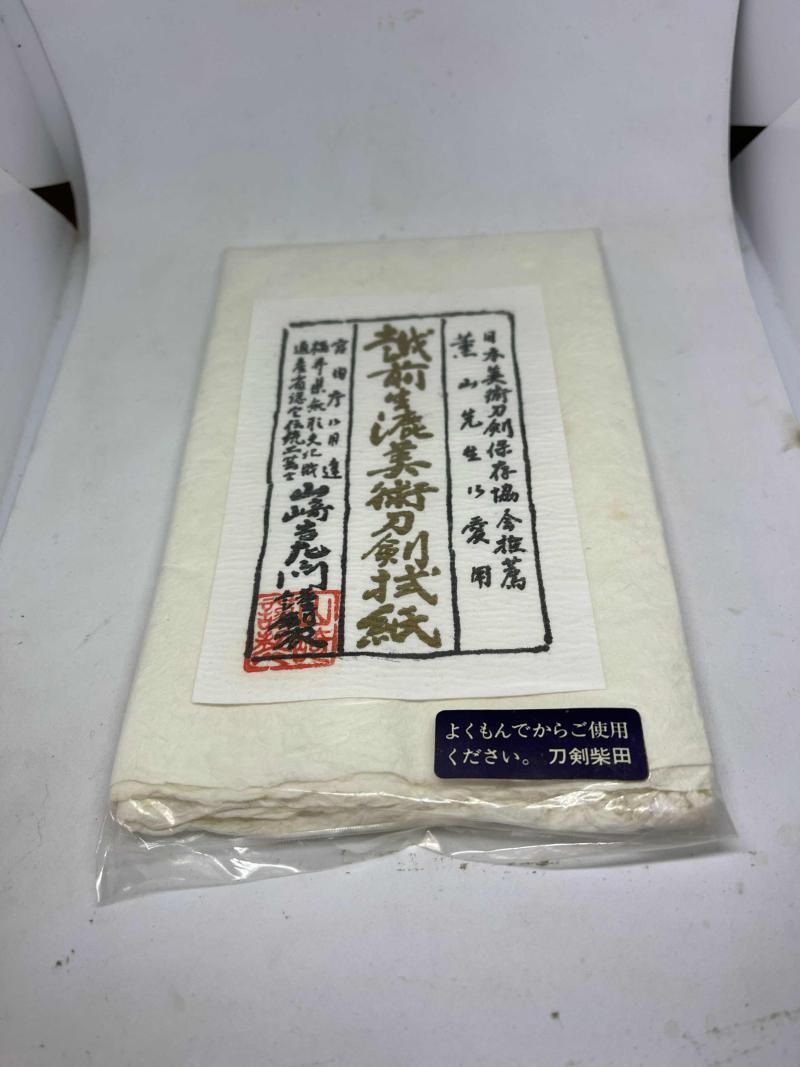 日本美術刀剣保存協会推薦
薫山先生ご愛用
越前生漉美術刀剣拭紙
宮内庁御用達
福井県無形文化財
通産省認定伝統工芸士
山崎吉左衛門謹製
よくもんでからご使用
ください。 刀剣柴田